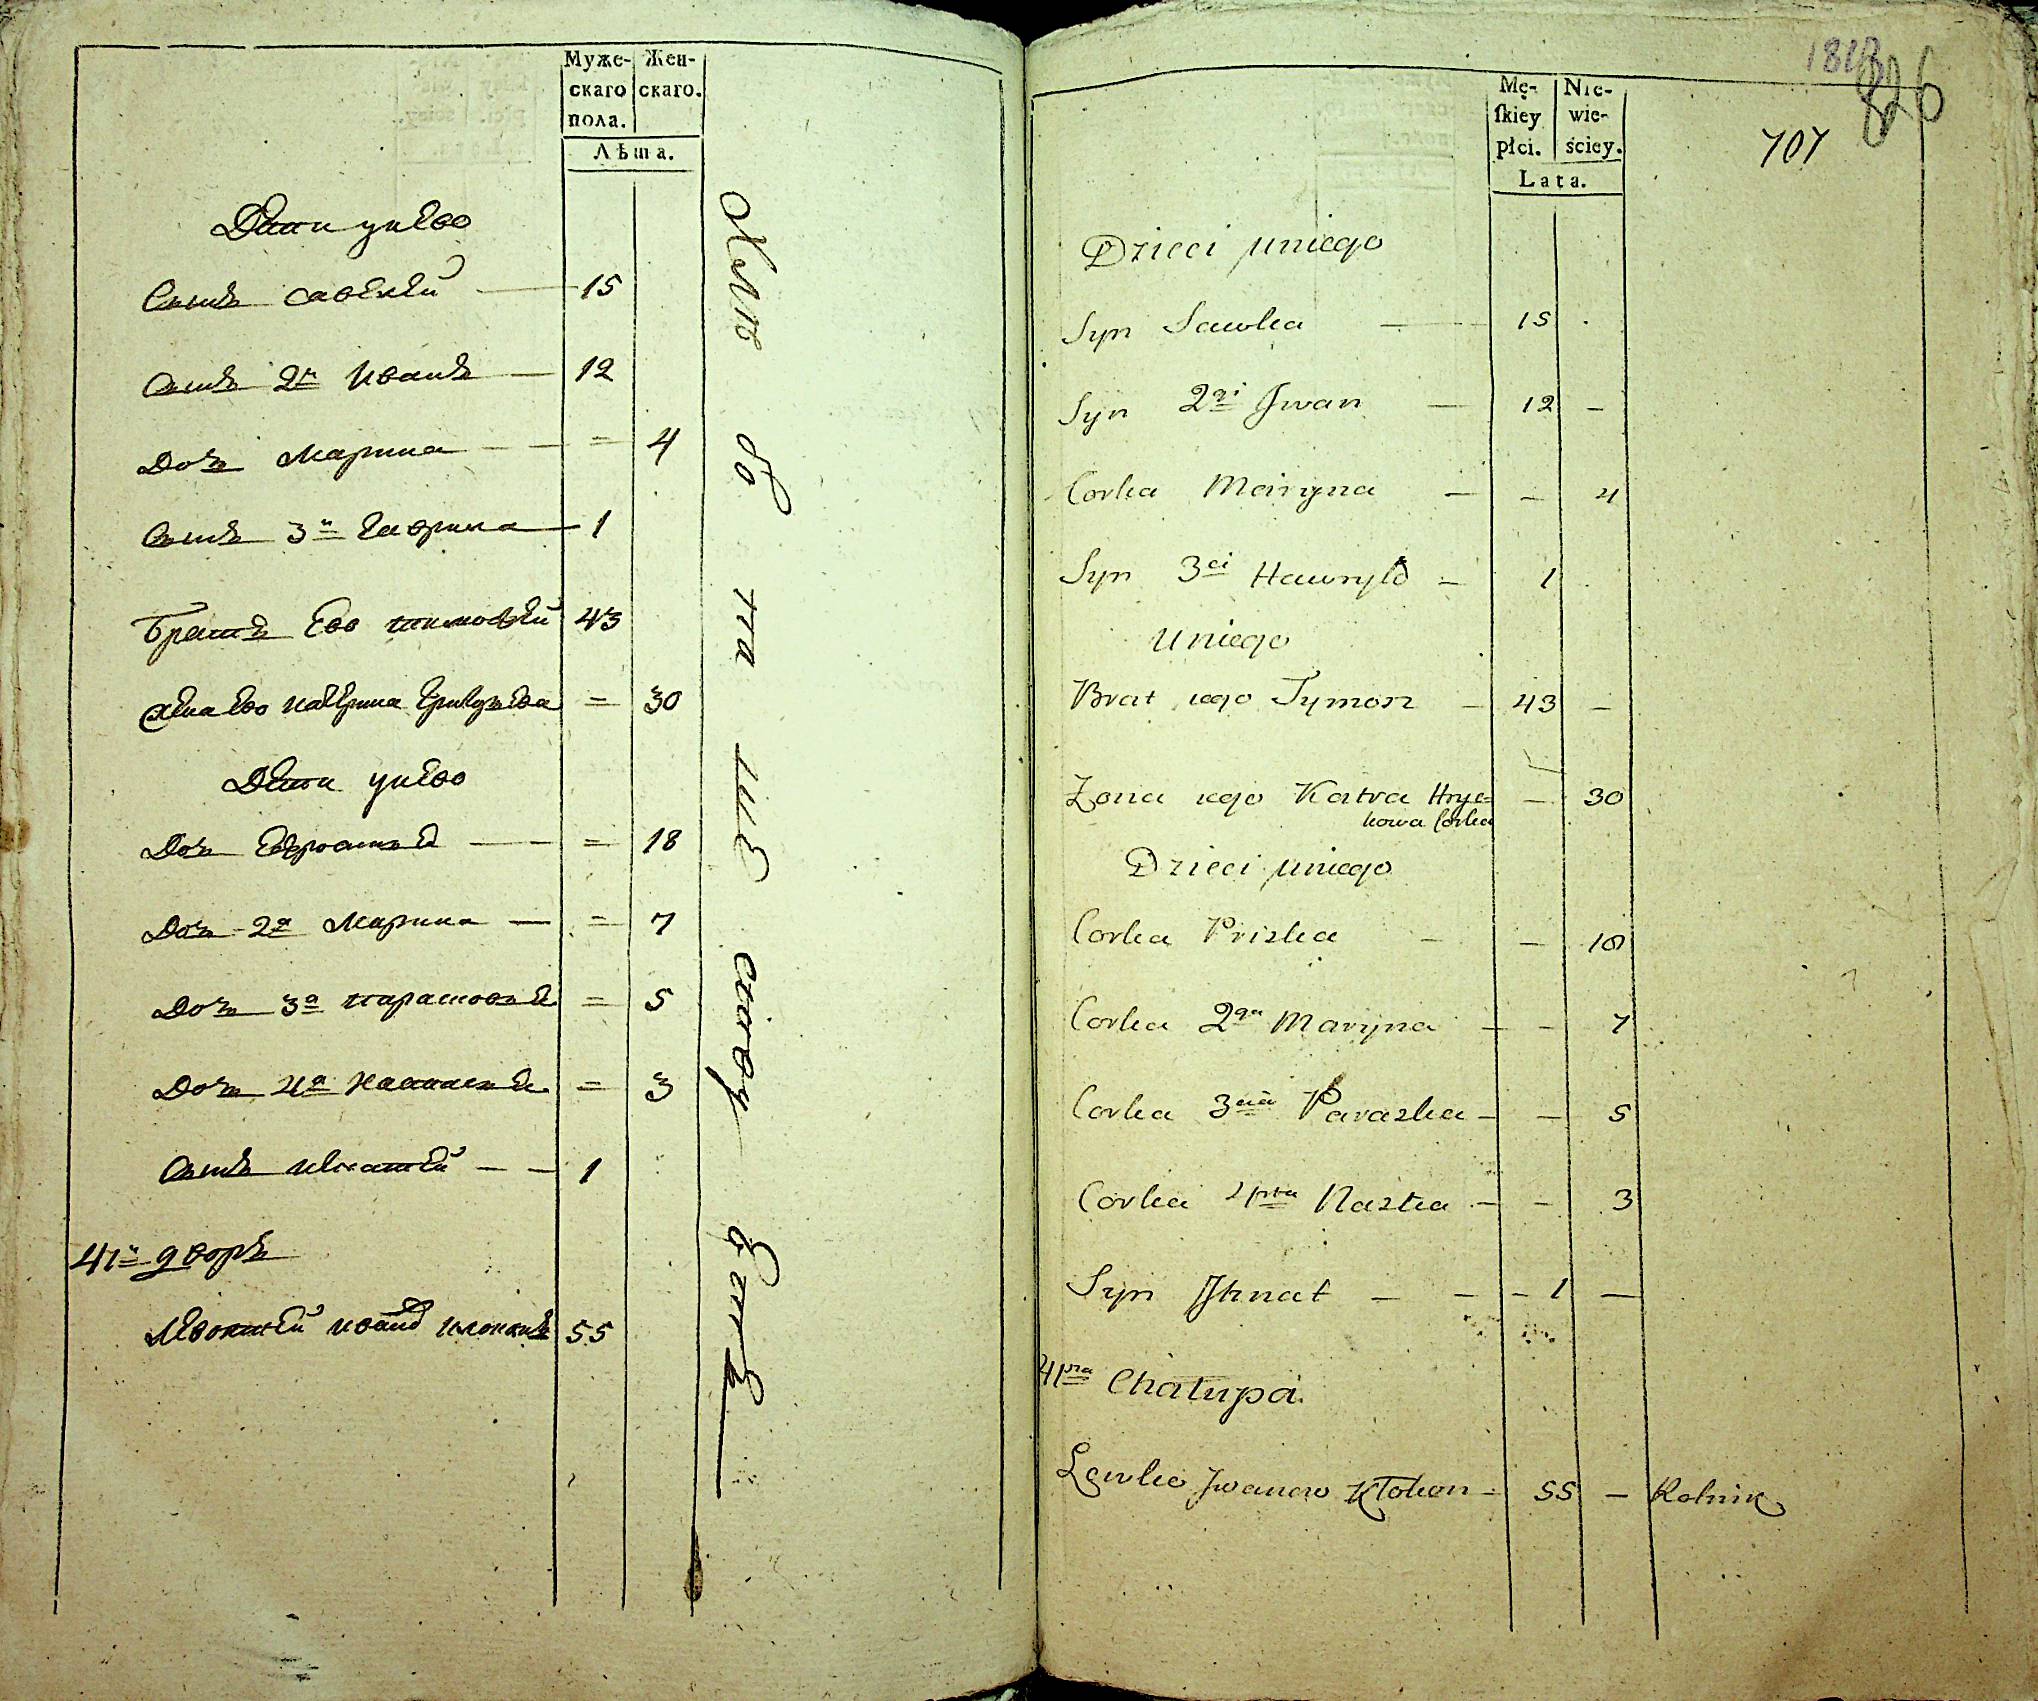 Муже-
скаго
пола.
Жен-
скаго.
Лѣта.
Дети унево
Сынъ Савелей 15
Сынъ 2й Иванъ 12
Дочь Марина 4
Сынъ 3й Гаврила 1
Братъ Ево Тимофей 43
Жена Ево Катерина 30
Дети унево
Дочь 18
Дочь 2я Марина 7
Дочь 3я Парасковья 5
Дочь 4я 3
Сынъ Игнатей 1
41й дворъ
Левонтей Иванов 55
1813
826
707
Mę-
ſkiey
płci.
Nie-
wie-
ściey.
Lata.
Dzieci uniego
Syn Sawka — 15
Syn 2gi Jwan — 12 –
Corka Maryna — – 4
Syn 3ci Hawryło – 1
Uniego
Brat iego Tymon – 43 –
Zona iego Katra Hryc=
kowa Corka – 30
Dzieci uniego
Corka Priska – – 18
Corka 2ga Maryna – – 7
Corka 3cia Paraska – – 5
Corka 4rta Nasta – – 3
Syn Jhnat – – – 1 —
41sza Chałupa
Lewko Jwanow Kłokon – 55 – Rolnik